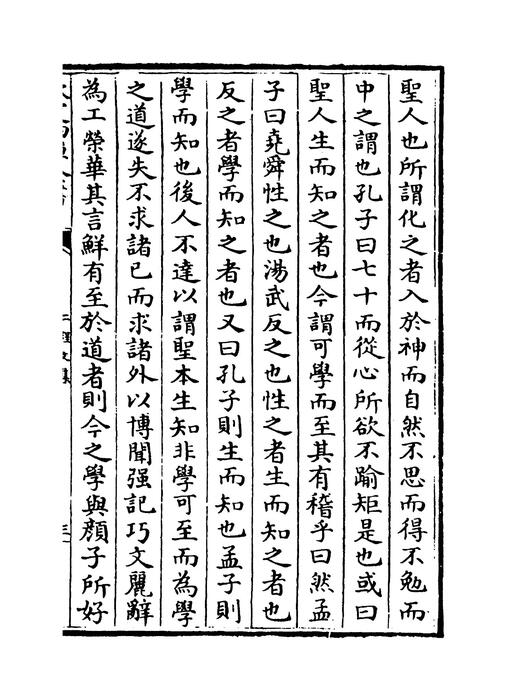 聖人也所謂化之者入於神而自然不思而得不勉而
中之謂也孔子曰七十而從心所欲不踰矩是也或曰
聖人生而知之者也今謂可學而至其有稽乎曰然孟
子曰堯舜性之也湯武反之也性之者生而知之者也
反之者學而知之者也又曰孔子則生而知也孟子則
學而知也後人不達以謂聖本生知非學可至而為學
之道遂失不求諸己而求諸外以博聞强記巧文麗辭
為工榮華其言鮮有至於道者則今之學與顔子所好